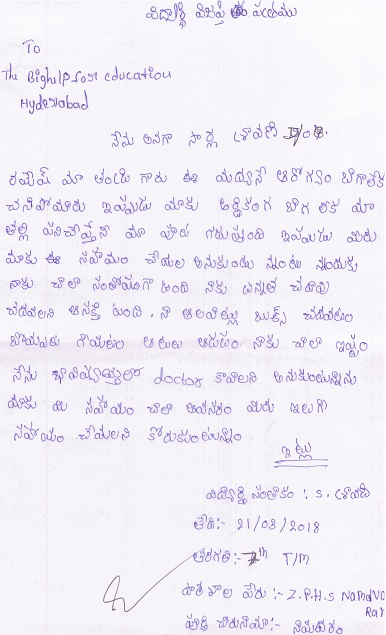 విద్యార్థి విజ్ఞప్తి పత్రము
To
The Bighelp for education
Hyderabad
నేను అనగా సార్ల శ్రావణి D/o
రమేష్ మా తండ్రి గారు ఈ మధ్యనే ఆరోగ్యం బాగాలేక
చనిపోయారు ఇప్పుడు మాకు ఆర్థికంగ బాగ లేక మా
తల్లి పనిచేస్తేనే మా పూట గడుస్తుంది ఇప్పుడు మీరు
మాకు ఈ సహాయం చేయల అనుకుంటు నందుకు
నాకు చాలా సంతోషంగా ఉంది నాకు ఉన్నత చదువు
చదవలని ఆసక్తి ఉంది. నా అలవాట్లు బుక్స్ చదవటం
బొమ్మలు గీయటం ఆటలు ఆడటం నాకు చాలా ఇష్టం
నేను భవిష్యత్తులో doctor కావాలని అనుకుంటున్నాను
మాకు మీ సహాయం చాలా అవసరం మీరు ఇలాగే
సహాయం చేయలని కోరుకుంటున్నాం
ఇట్లు
విద్యార్థి సంతకం : S. శ్రావణి
తేది:- 21/03/2018
తరగతి:- 7th T/M
పాఠశాల పేరు :- Z.P.H.S
పూర్తి చిరునామా :-